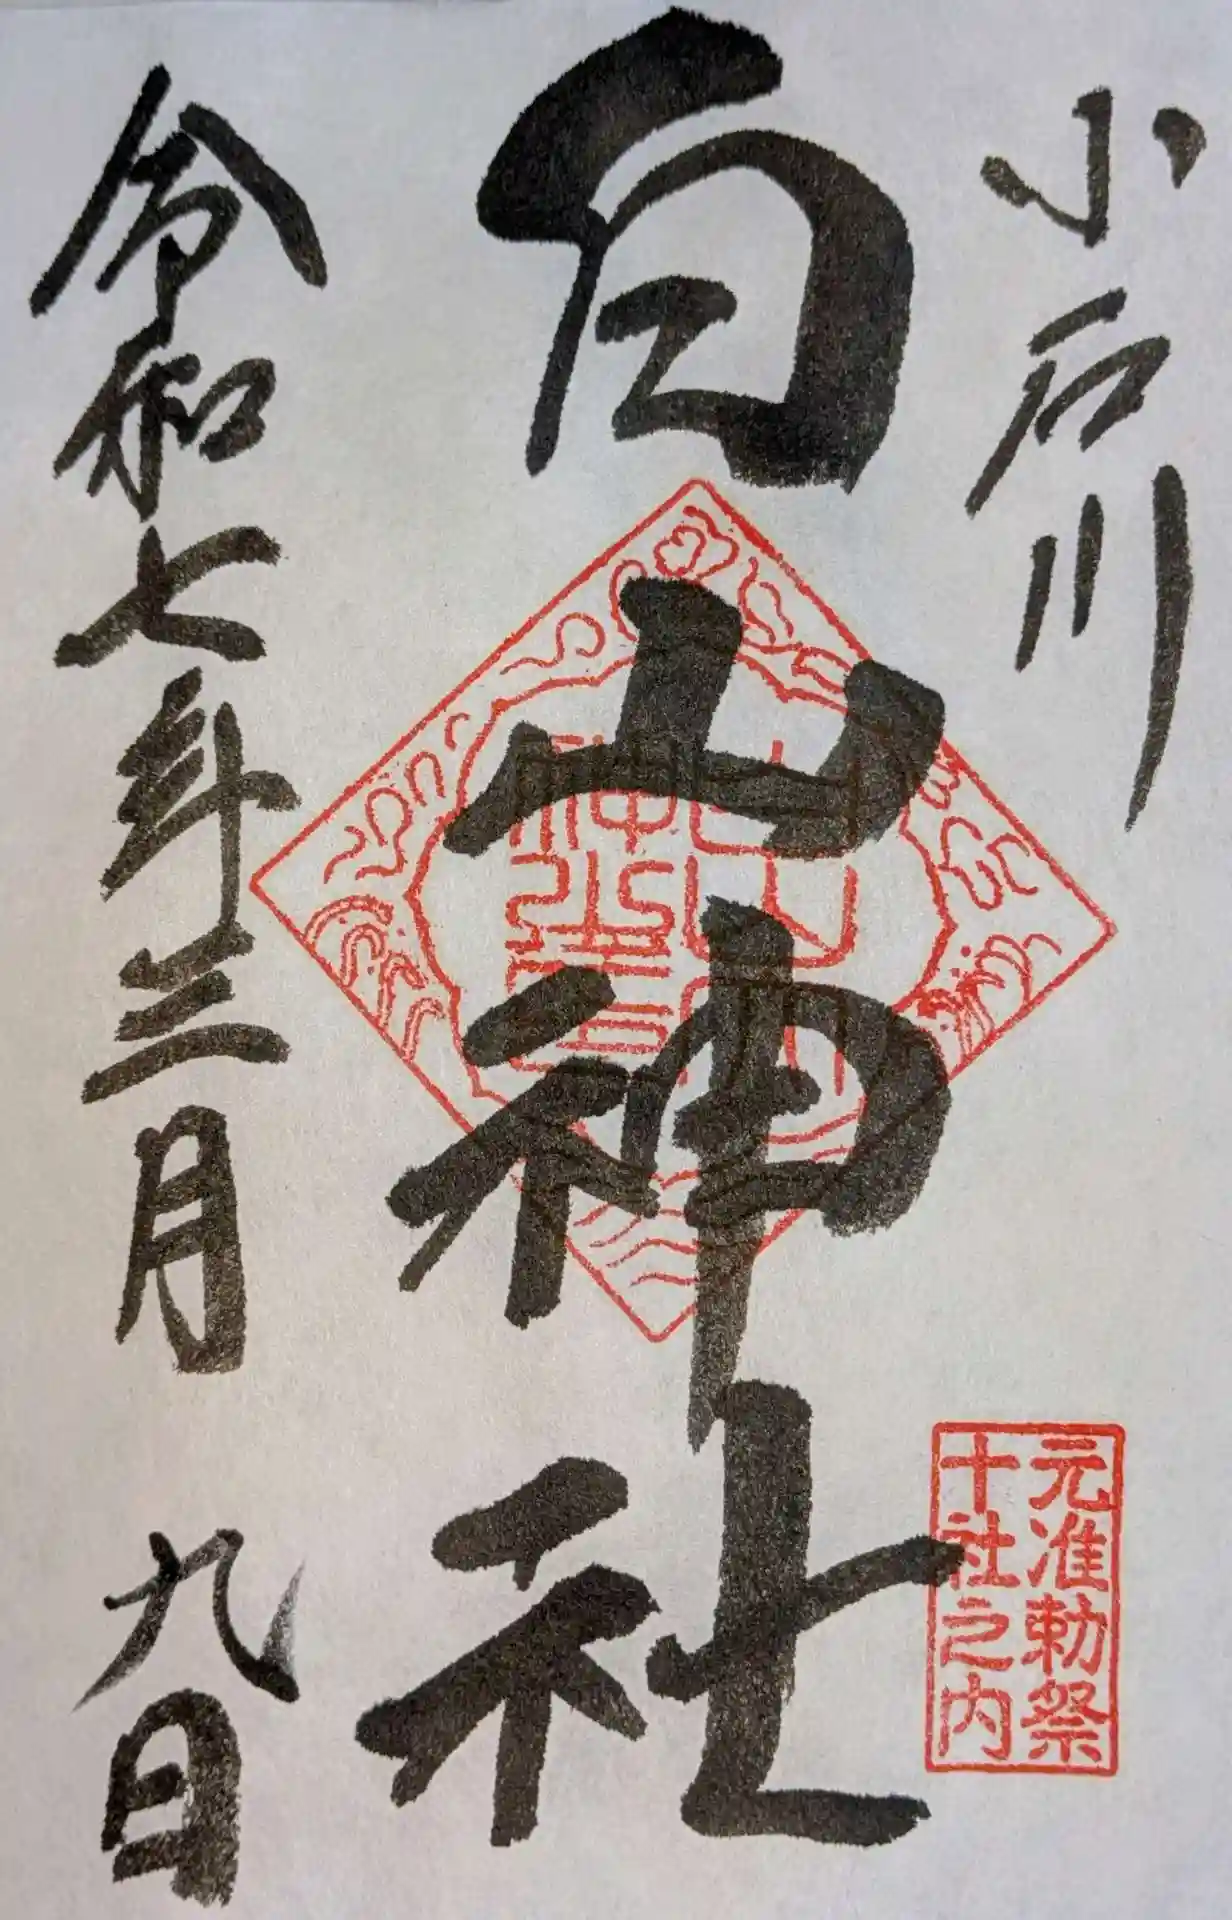 小石川
白山神社
令和七年三月九日
元准勅祭
十社之内